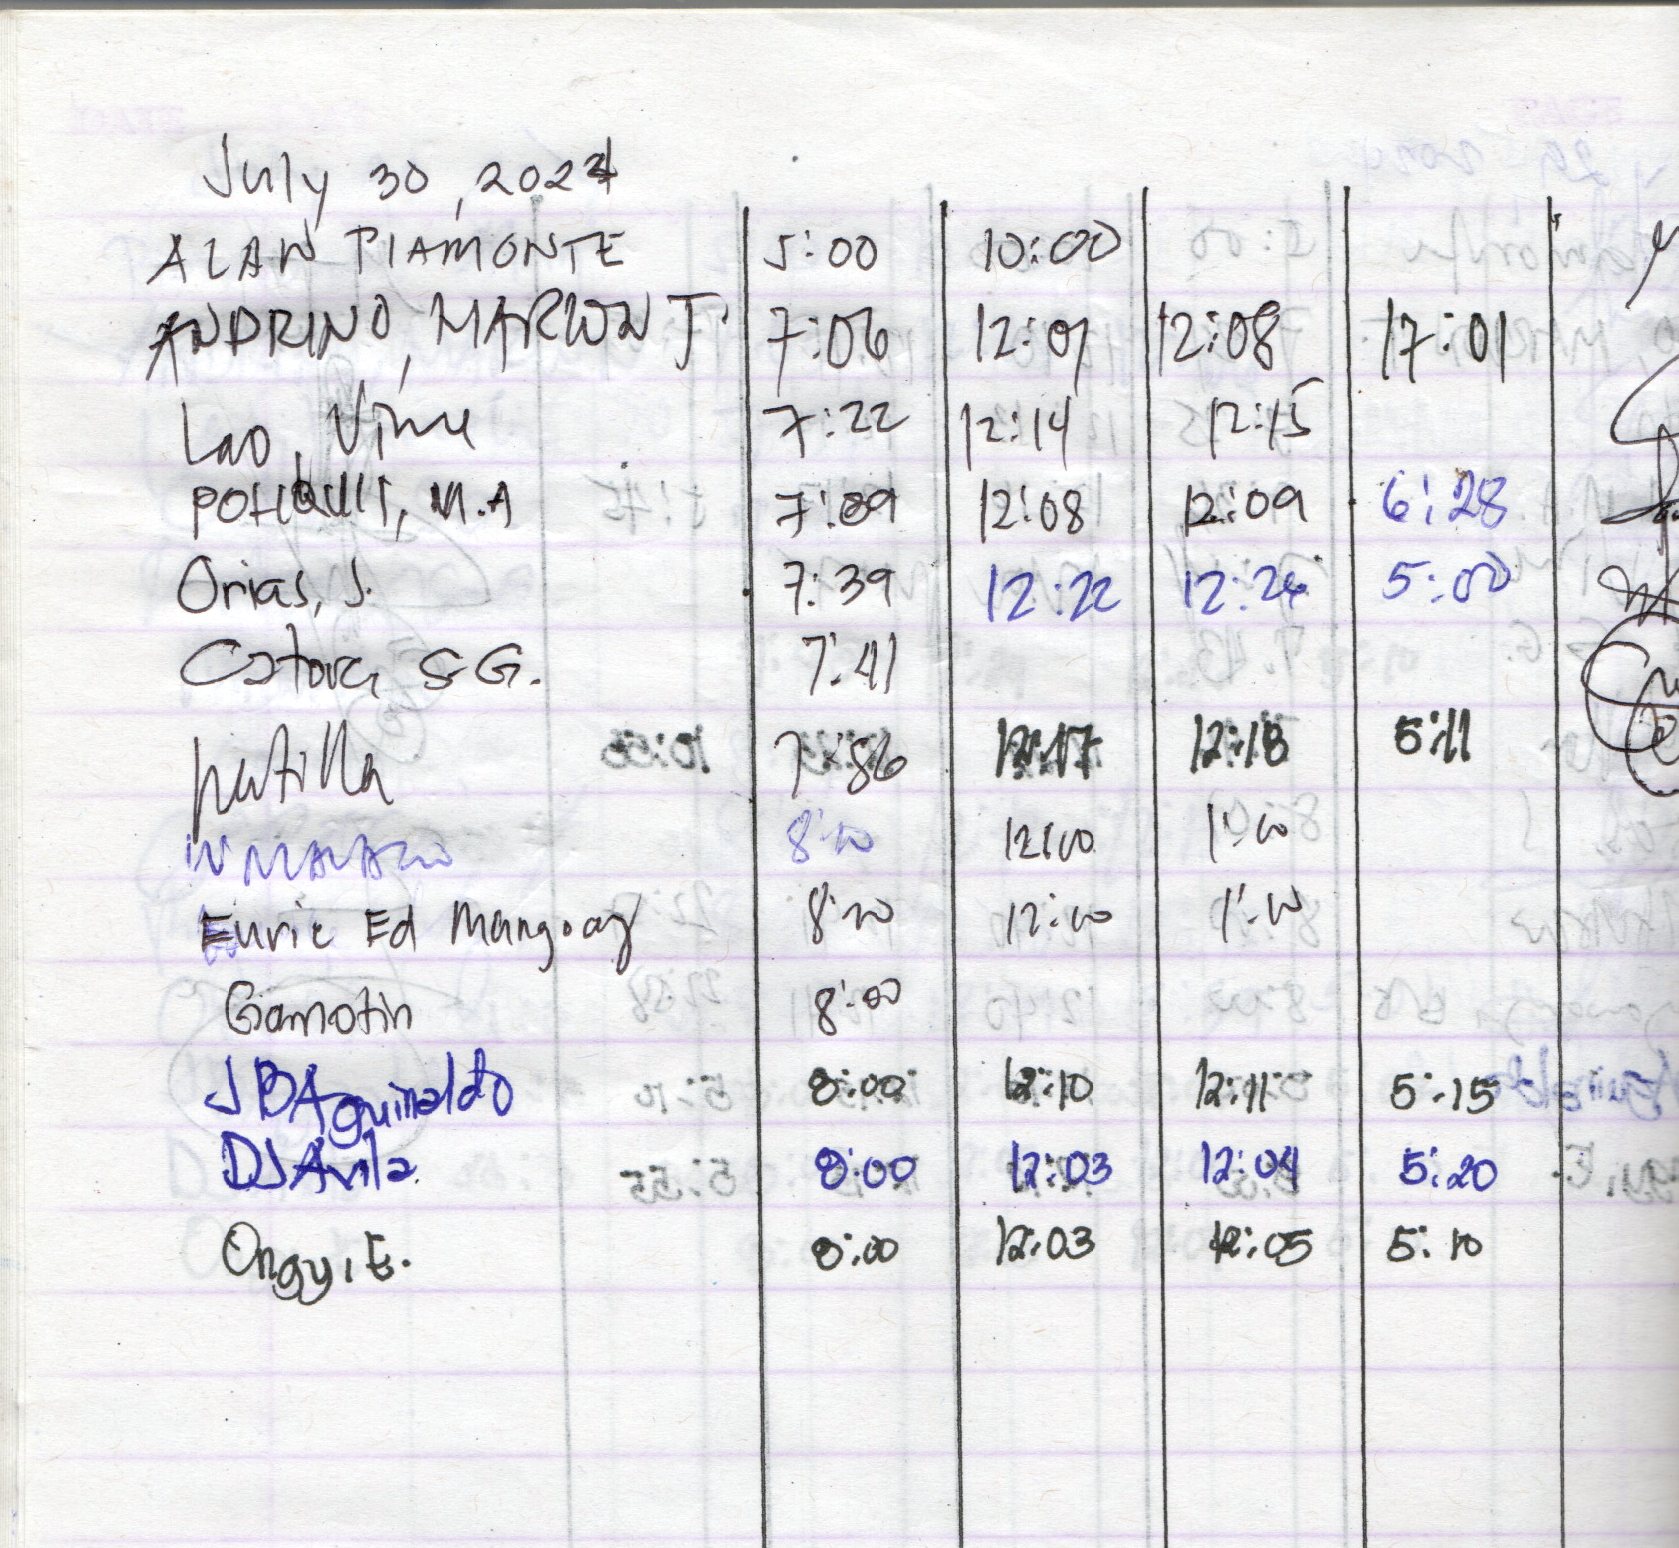 July 30, 2024
ALAN PIAMONTE 5:00 10:00
ANDRINO, MARLON J. 7:06 12:07 12:08 17:01
Lao, Vince 7:22 12:14 12:15
POHQUIT, M.A 7:09 12:08 12:09 6:28
Orias, J. 7:39 12:22 12:24 5:00
S.G. 7:41
Patilla 7:56 12:17 12:18 5:11
8:00 12:00 1:00
Euric Ed Mangoay 8:00 12:00 1:00
Gamotin 8:00
JBAguinaldo 8:00 12:10 12:11 5:15
DJAvila 8:00 12:03 12:04 5:20
Ongy, E. 8:00 12:03 12:05 5:10